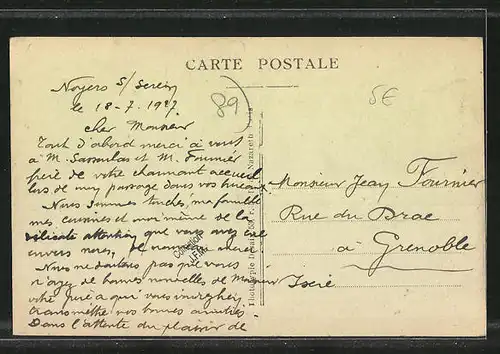 CARTE POSTALE
Noyers s/ Serein
le 18-7-1927
89
5E
cher Monsieur
Tout d'abord merci à vous
à M. Sassoulas et M. Fournier
père de votre charmant accueil
lors de mon passage dans vos bureaux.
Nous sommes touchés, ma famille
mes et moi même de la
délicate attention que vous avez eue
envers nous, de nouveau merci
Nous ne doutons pas que vous
n'ayez de bonnes nouvelles de Monsieur
votre père à qui vous
transmettre nos bonnes amitiés.
Dans l'attente du plaisir de
Collection
Nazareth Paris
Monsieur Jean Fournier
Rue du Drac
à Grenoble
Isère